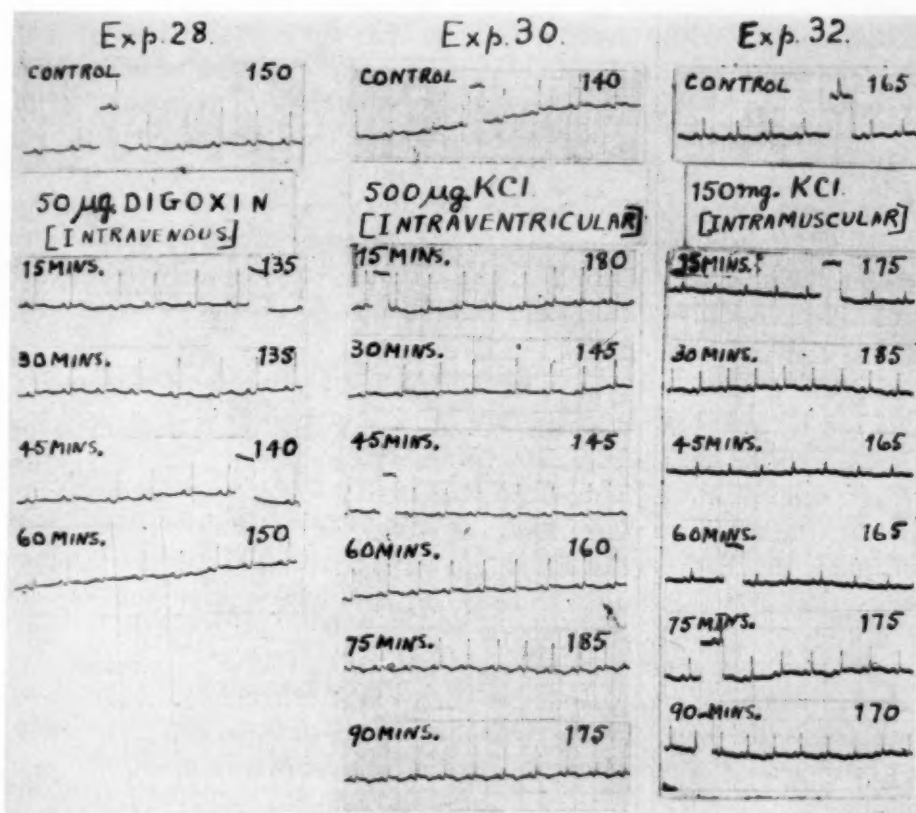 Exp. 28.
CONTROL 150
50 µg. DIGOXIN
[INTRAVENOUS]
15 MINS. 135
30 MINS. 135
45 MINS. 140
60 MINS. 150
Exp. 30.
CONTROL 140
500 µg. KCl.
[INTRAVENTRICULAR]
15 MINS. 180
30 MINS. 145
45 MINS. 145
60 MINS. 160
75 MINS. 185
90 MINS. 175
Exp. 32.
CONTROL 165
150 mg. KCl.
[INTRAMUSCULAR]
MINS. 175
30 MINS. 185
45 MINS. 165
60 MINS. 165
75 MINS. 175
90 MINS. 170